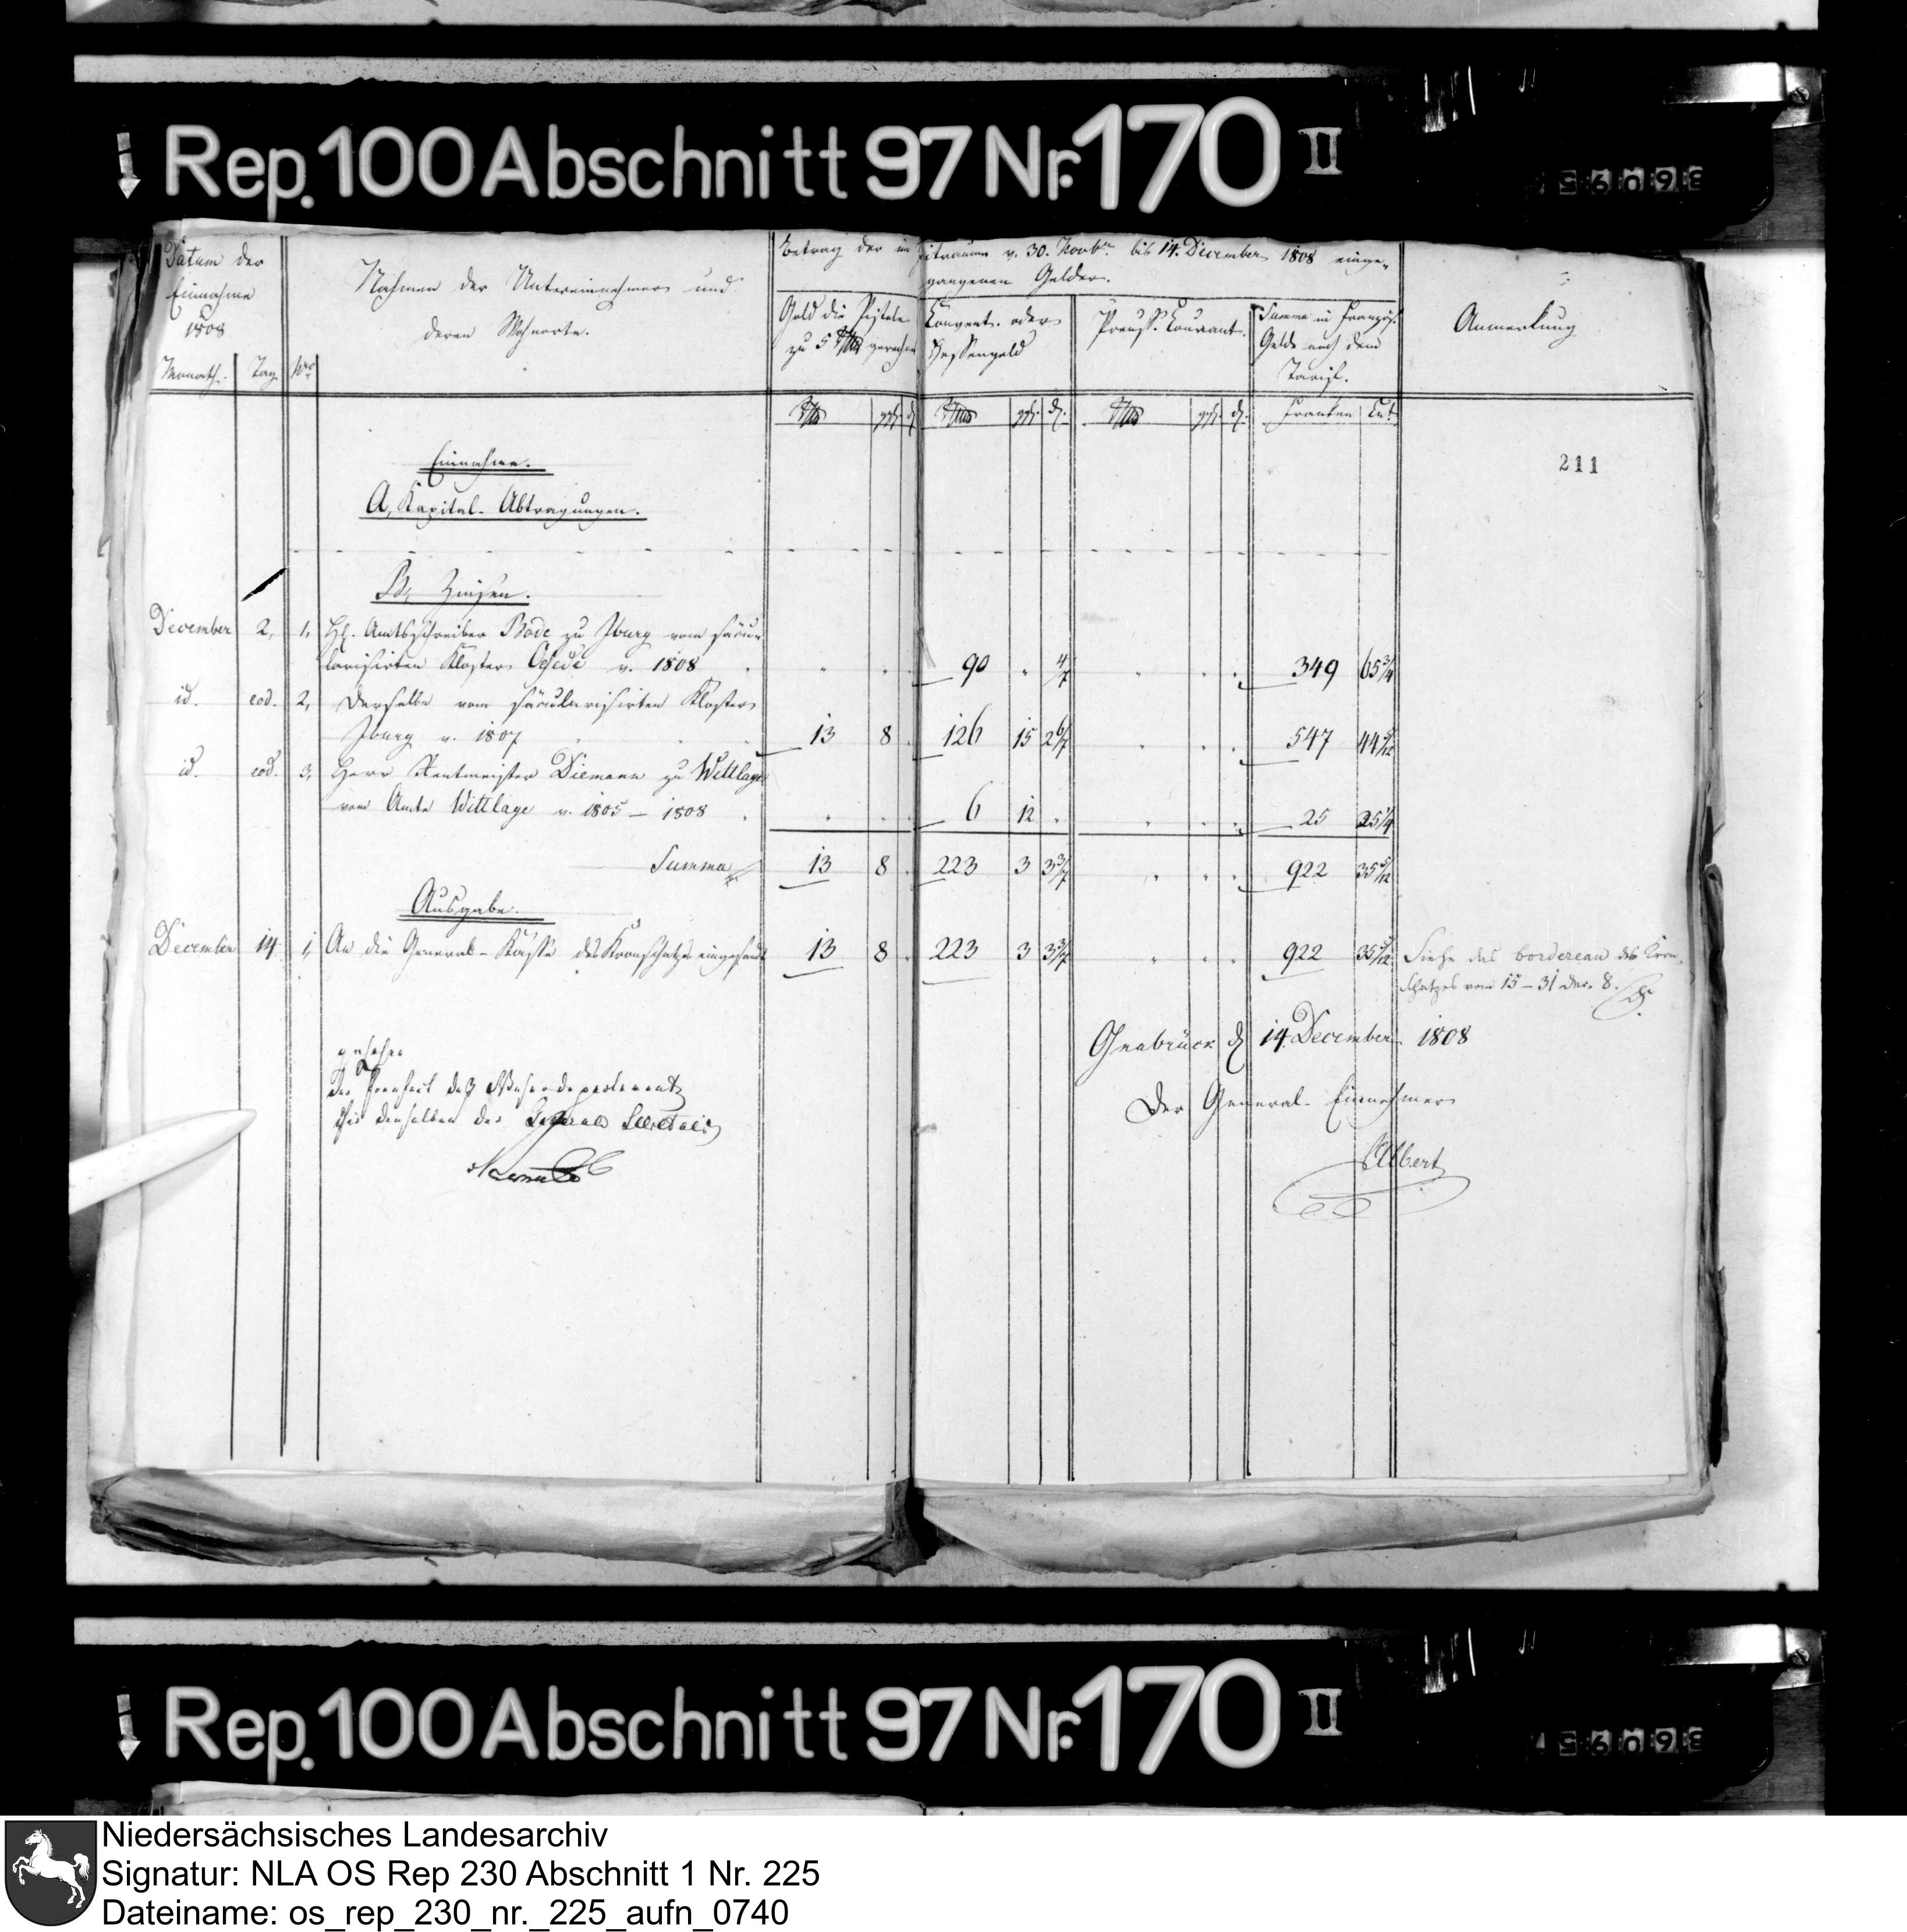 Rep. 100 Abschnitt 97 Nr. 170 II
Datum der
Einnahme
1808
Monath. Tag Nro
Nahmen der Untereinnehmer und
deren Wohnorte.
Betrag der im Zeitraume v. 30. Novbr. bis 14. December 1808 einge-
gangenen Gelder.
Gold die Pistole
zu 5 Rthlr gerechnet
Convent. oder
Hessengeld
Preuss. Courant.
Summa in Französ.
Gelde nach dem
Tarif.
Anmerkung
Rthlr ggr. d. Rthlr ggr. d. Rthlr ggr. d. Franken Cent.
211
Einnahme.
A, Kapital-Abtragungen.
B, Zinsen.
December 2, 1, H. Amtsschreiber Bode zu Iburg vom säcu-
larisirten Kloster Oesede v. 1808 90 4/7 349 65 3/4
id. eod. 2, Derselbe vom säcularisirten Kloster
Iburg v. 1807 13 8 126 15 2 6/7 547 44 5/12
id. eod. 3, Herr Rentmeister Diemann zu Wittlage
vom Amte Wittlage v. 1805 – 1808 6 12 25 25 1/4
Summa 13 8 223 3 3 3/7 922 35 5/12
Ausgabe.
December 14 1, An die General-Kasse des Kronschatzes eingesandt 13 8 223 3 3 3/7 922 35 5/12 Siehe das bordereau des Kron-
schatzes vom 15 – 31 Dec. 8.
Osnabrück d 14. December 1808
Der General-Einnehmer
Albert
gesehen
Der General Secretair
Rep. 100 Abschnitt 97 Nr. 170 II
Niedersächsisches Landesarchiv
Signatur: NLA OS Rep 230 Abschnitt 1 Nr. 225
Dateiname: os_rep_230_nr._225_aufn_0740